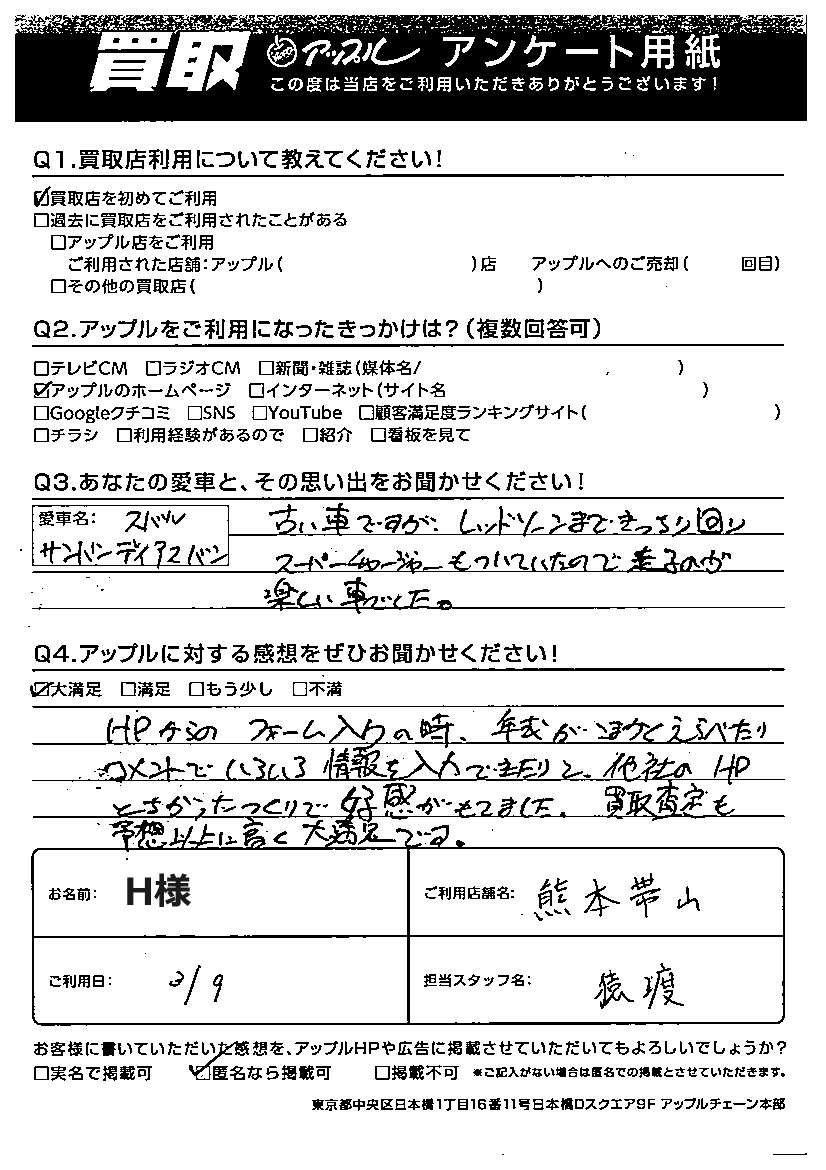 買取 アップル アンケート用紙
この度は当店をご利用いただきありがとうございます！
Q1.買取店利用について教えてください！
☑買取店を初めてご利用
□過去に買取店をご利用されたことがある
□アップル店をご利用
ご利用された店舗：アップル（ ）店 アップルへのご売却（ 回目）
□その他の買取店（ ）
Q2.アップルをご利用になったきっかけは？（複数回答可）
□テレビCM □ラジオCM □新聞・雑誌（媒体名/ ）
☑アップルのホームページ □インターネット（サイト名 ）
□Googleクチコミ □SNS □YouTube □顧客満足度ランキングサイト（ ）
□チラシ □利用経験があるので □紹介 □看板を見て
Q3.あなたの愛車と、その思い出をお聞かせください！
愛車名： スバル
サンバンディアスバン
古い車ですが、レッドゾーンまできっちり回り
スーパーチャージャーもついていたので走るのが
楽しい車でした。
Q4.アップルに対する感想をぜひお聞かせください！
☑大満足 □満足 □もう少し □不満
HPからのフォーム入力の時、年式がこまかくえらべたり
コメントでいろいろ情報を入力できたりと、他社のHP
とちがったつくりで好感がもてました。買取査定も
予想以上に高く大満足です。
お名前： H様
ご利用店舗名： 熊本帯山
ご利用日： 3/9
担当スタッフ名： 猿渡
お客様に書いていただいた感想を、アップルHPや広告に掲載させていただいてもよろしいでしょうか？
□実名で掲載可 ☑匿名なら掲載可 □掲載不可 ※ご記入がない場合は匿名での掲載とさせていただきます。
東京都中央区日本橋1丁目16番11号日本橋Dスクエア9F アップルチェーン本部